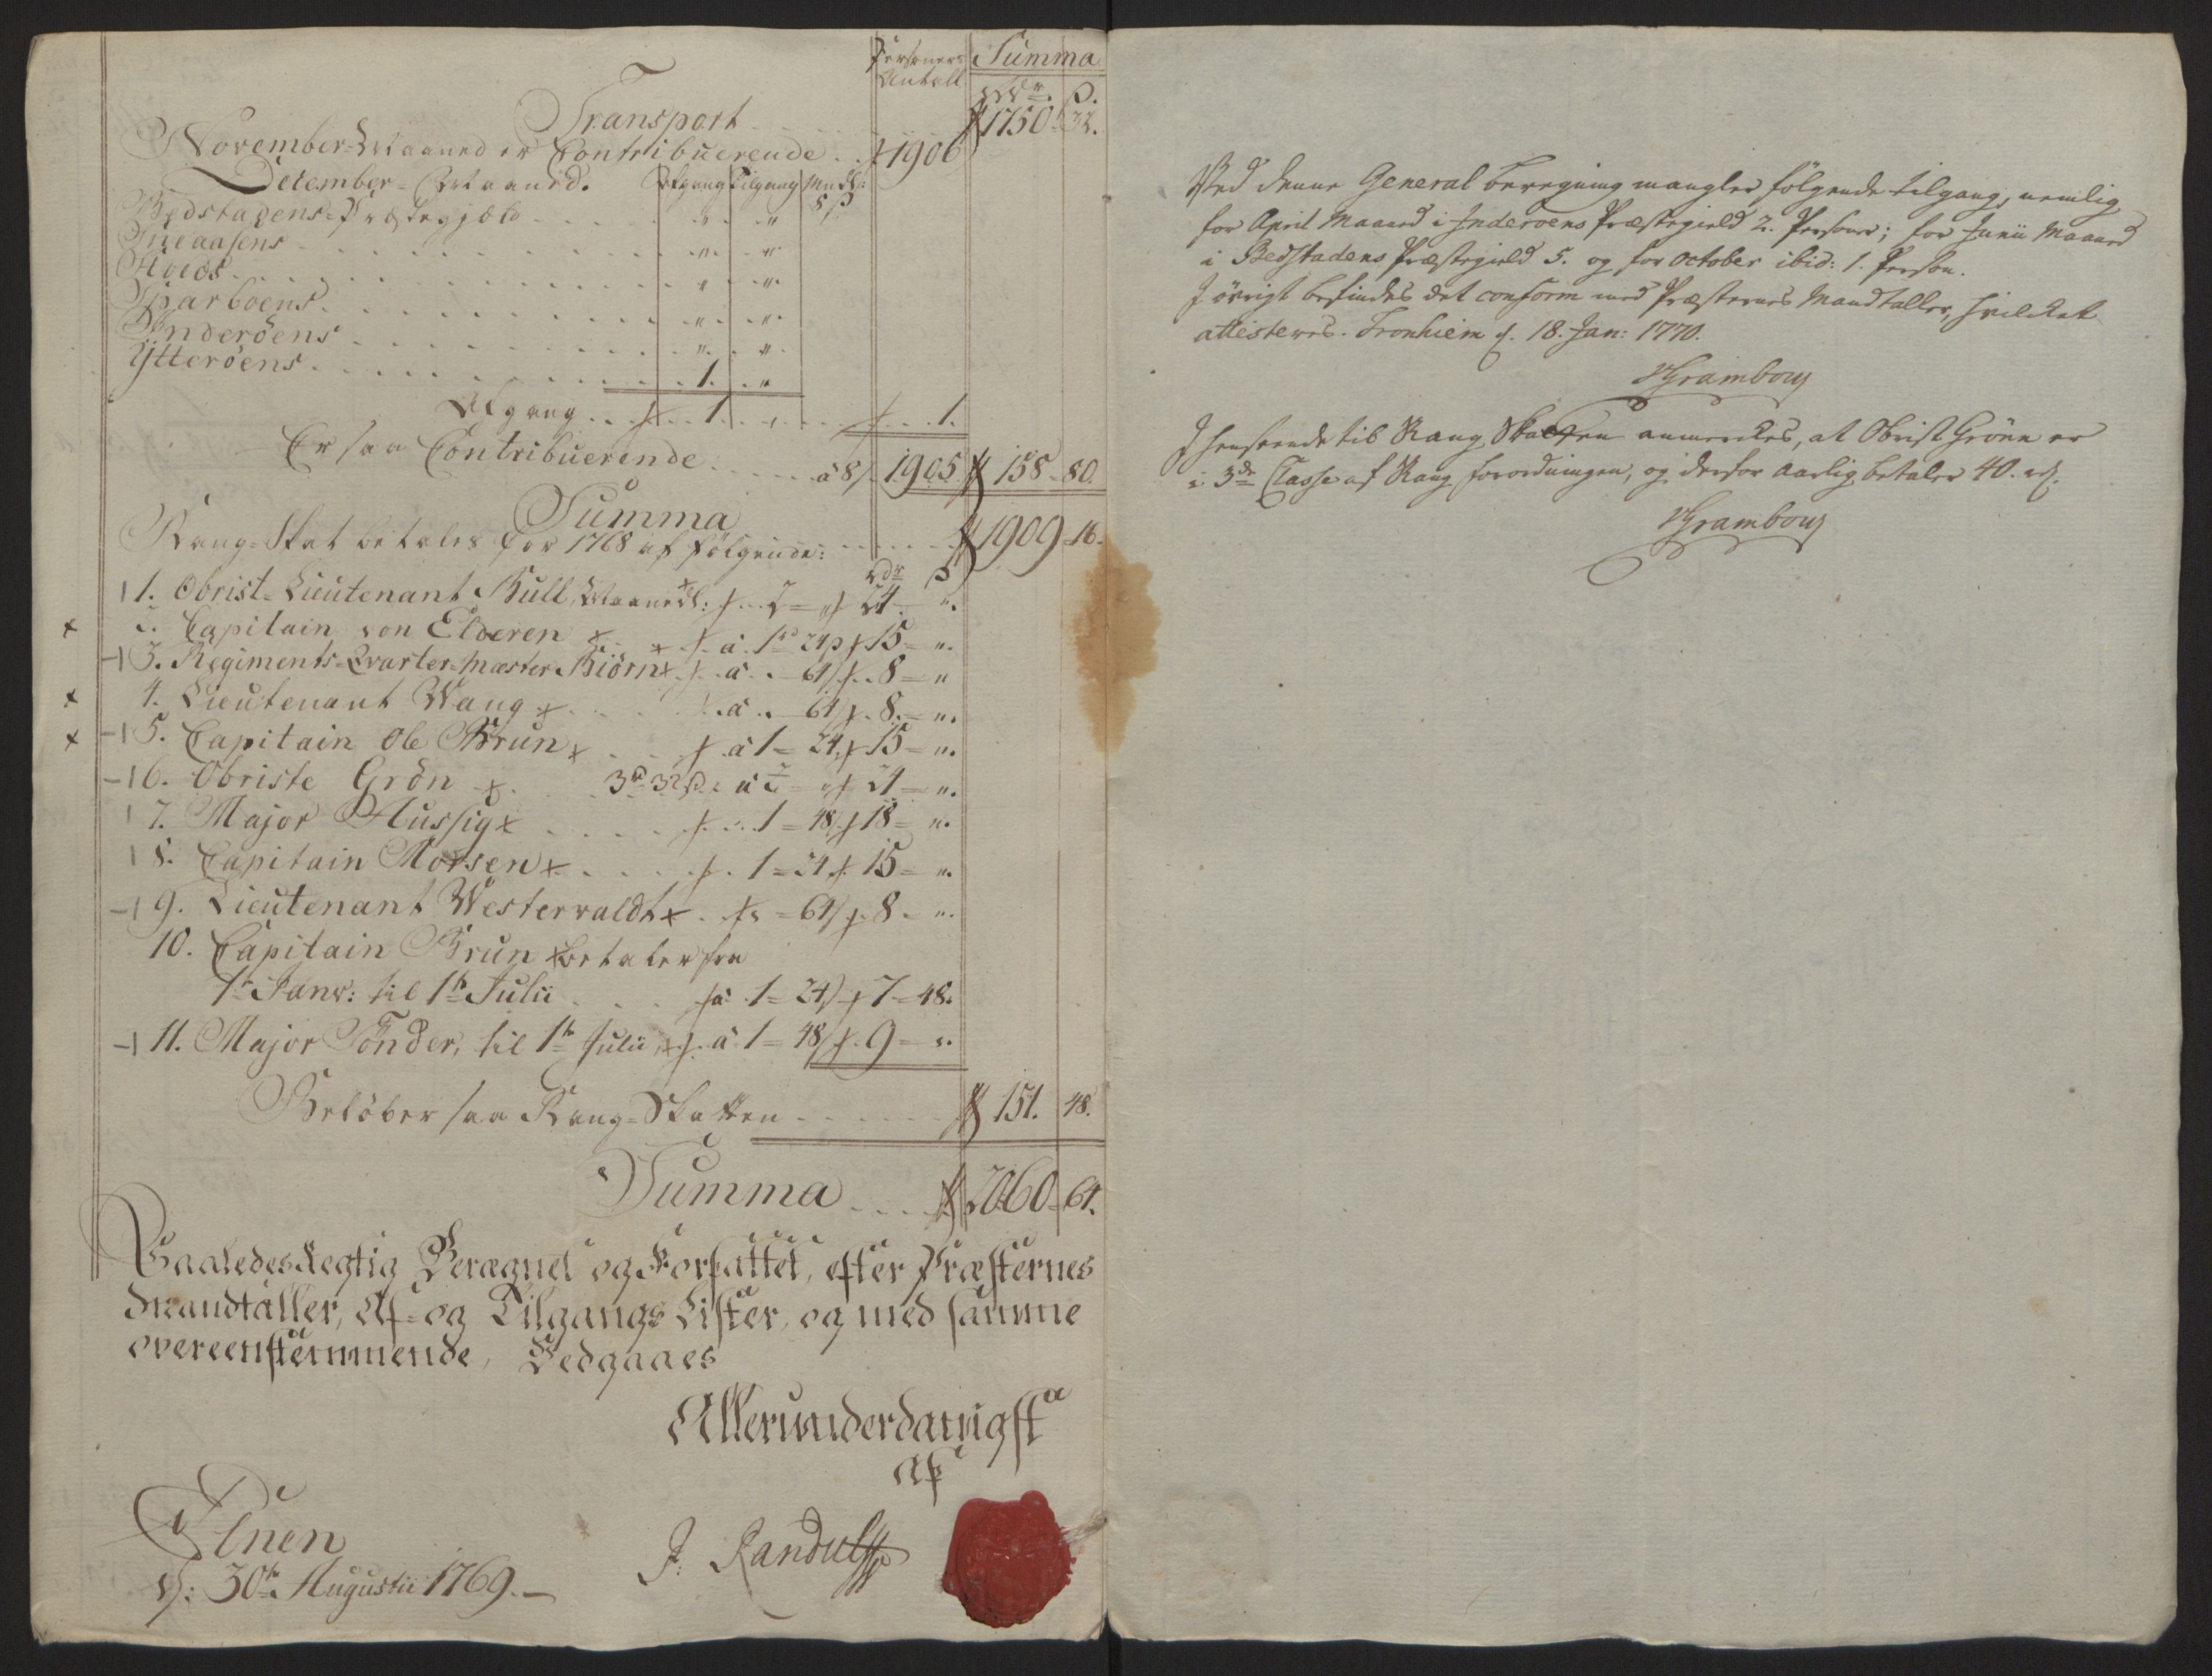 Persohners Antall Summa
Rdr. ß.
Transport 1750 32.
November-Maaned er Contribuerende 1906
December-Maaned. Afgang Tilgang Mndtl:
8 ß
Bedstadens-Præstegjeld " "
Sneaasens " "
" "
Sparboens " "
Inderöens " "
Ytteröens 1. "
Afgang 1. 1.
Er saa Contribuerende a 8ß 1905 158 80.
Summa 1909 16.
Rang-Skat betales for 1768 af følgende:
rdr ß
1. Obrist-Lieutenant Bull, Maanedl: 2 = " 24 ".
2. Capitain von Elderen a 1rd 24ß 15 = ".
3. Regiments-Qvarter-Mæster Biörn a . 64ß 8 = "
4. Lieutenant Wang a . 64ß 8 = ".
5. Capitain Ole Brun a 1 = 24 15 = ".
6. Obriste Grön 3rd 32ß a 2 = " 24 = ".
7. Major Hussig 1 = 48 18 = ".
8. Capitain Motsen 1 = 24 15 = ".
9. Lieutenant Westervaldt = 64ß 8 ".
10. Capitain Brun betaler fra
1te Janv: til 1te Julii a 1 = 24ß 7 = 48.
11. Major Tönder, til 1te Julii, a 1 = 48ß 9 = ".
Belöber saa Rang-Skatten 151. 48.
Summa 2060 64.
Saaledes Regtig Beregnet og Forfattet, efter Præsternes
Mandtaller, Af- og Tilgangs Lister, og med samme
overeenstemmende, Vedgaaes
Allerunderdanigst
af
d: 30te Augustii 1769.
J: Randulff
Ved denne General beregning mangler fölgende tilgang, nemlig
for April Maaned i Inderoens Præstegield 2. Personer; for Junii Maaned
i Bedstadens Præstegield 5. og for October ibid: 1. Person.
I övrigt befindes det conform med Præsternes Mandtaller, hvilket
attesteres. Tronhiem d. 18. Jan: 1770.
HGrambouj
I henseende til Rang Skatten anmerkes, at Obrist Grönn er
i 3de Classe af Rang forordningen, og derfor aarlig betaler 40. rd.
HGrambouj